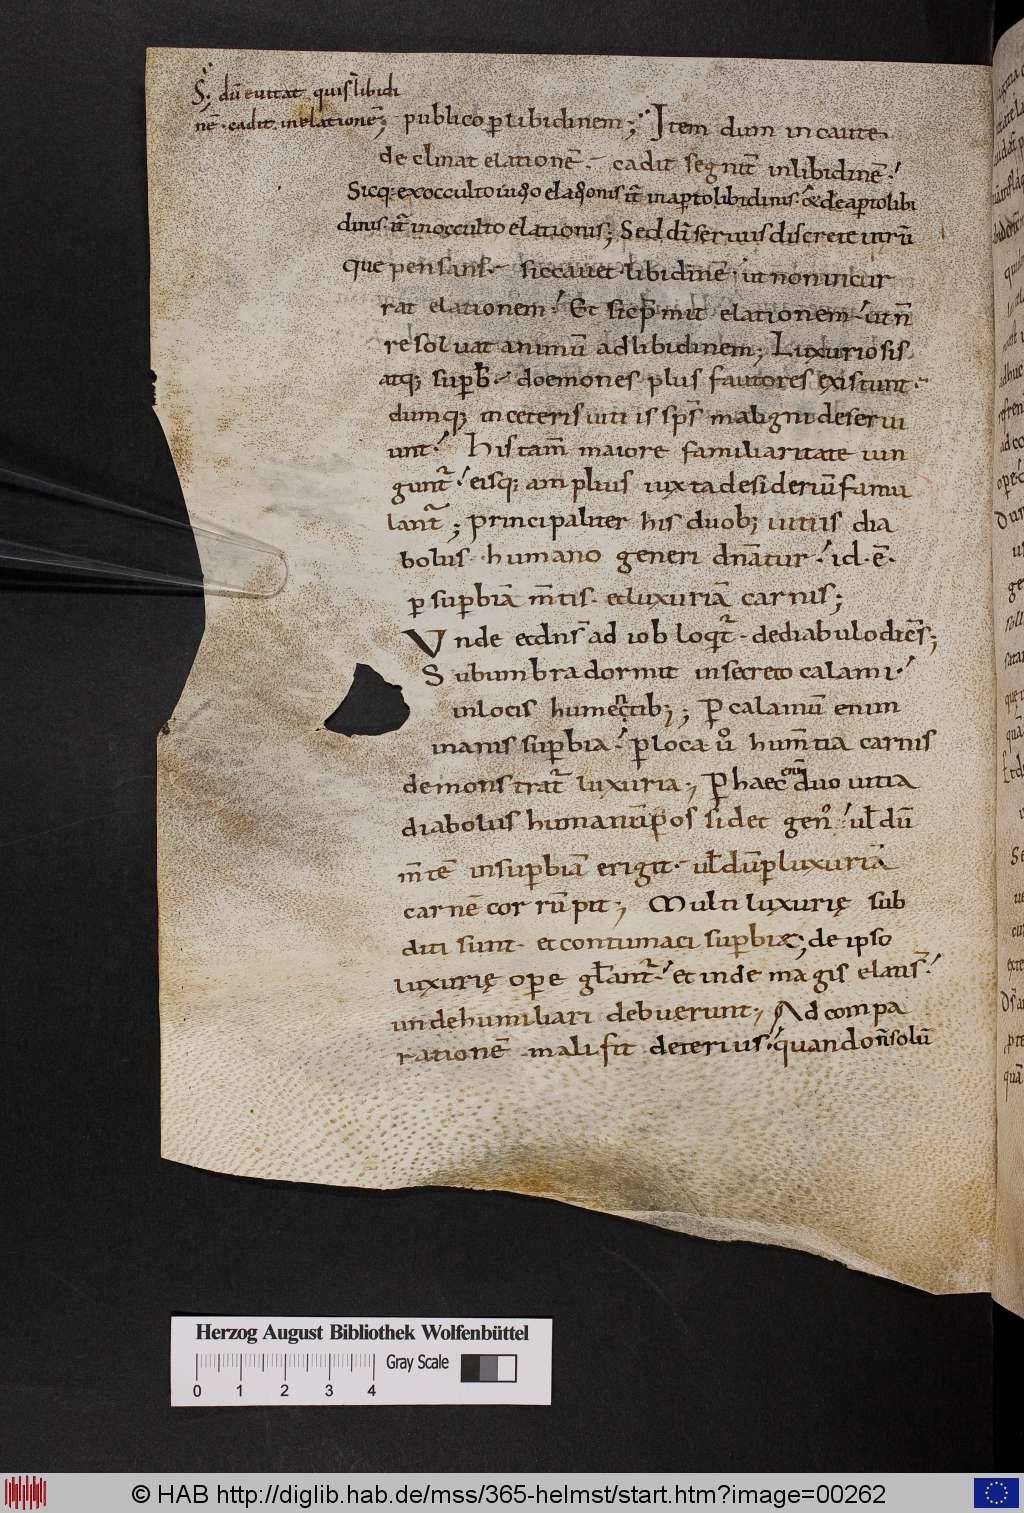 S; dū euitat quis libidi
nē· cadit inelationē;
publico ꝑ libidinem; Item dum incaute
declinat elationē· cadit segnit̄ inlibidinē·
Sicq; exocculto
elationis; Sed dī seruus discrete utrū
que pensans· sic cauet libidinē· ut non incur
rat elationem· Et sic p̄mit elationem· ut n̄
resoluat animū adlibidinem; Luxuriosis
atq; supb̄· doemones plus fautores existunt·
dumq; inceteris uitiis sp̄s maligni deserui
unt· His tam̄ maiore familiaritate iun
gunt̄· eisq; amplius iuxta desideriū famu
lant̄; principaliter his duob; uitiis dia
bolus humano generi dn̄atur· id· ē·
ꝑ supꝑbiā m̄tis· et luxuriā carnis;
Vnde et dn̄s ad iob loq̄t̄· dediabulo dic̄s;
Sub umbra dormit insecreto calami·
inlocis humectib;; Ꝑ calamū enim
inanis supꝑbia· ꝑ loca ů hum̄tia carnis
demonstrat̄ luxuria; Ꝑ haec eni duo uitia
diabolus humano crīpos sidet genͦ· ul̄ dū
m̄tē insupꝑbiā erigit· ul̄ dū ꝑ luxuriā
carnē corrūpit; Multi luxurię sub
diti sunt· et contumaci supꝑbię; de ipso
luxurię ope gl̄ant̄· et inde magis elatis̄·
unde humiliari debuerunt, Ad compa
rationē mali fit deterius· quando n̄ solū
Herzog August Bibliothek Wolfenbüttel
Gray Scale
0 1 2 3 4
© HAB http://diglib.hab.de/mss/365-helmst/start.htm?image=00262